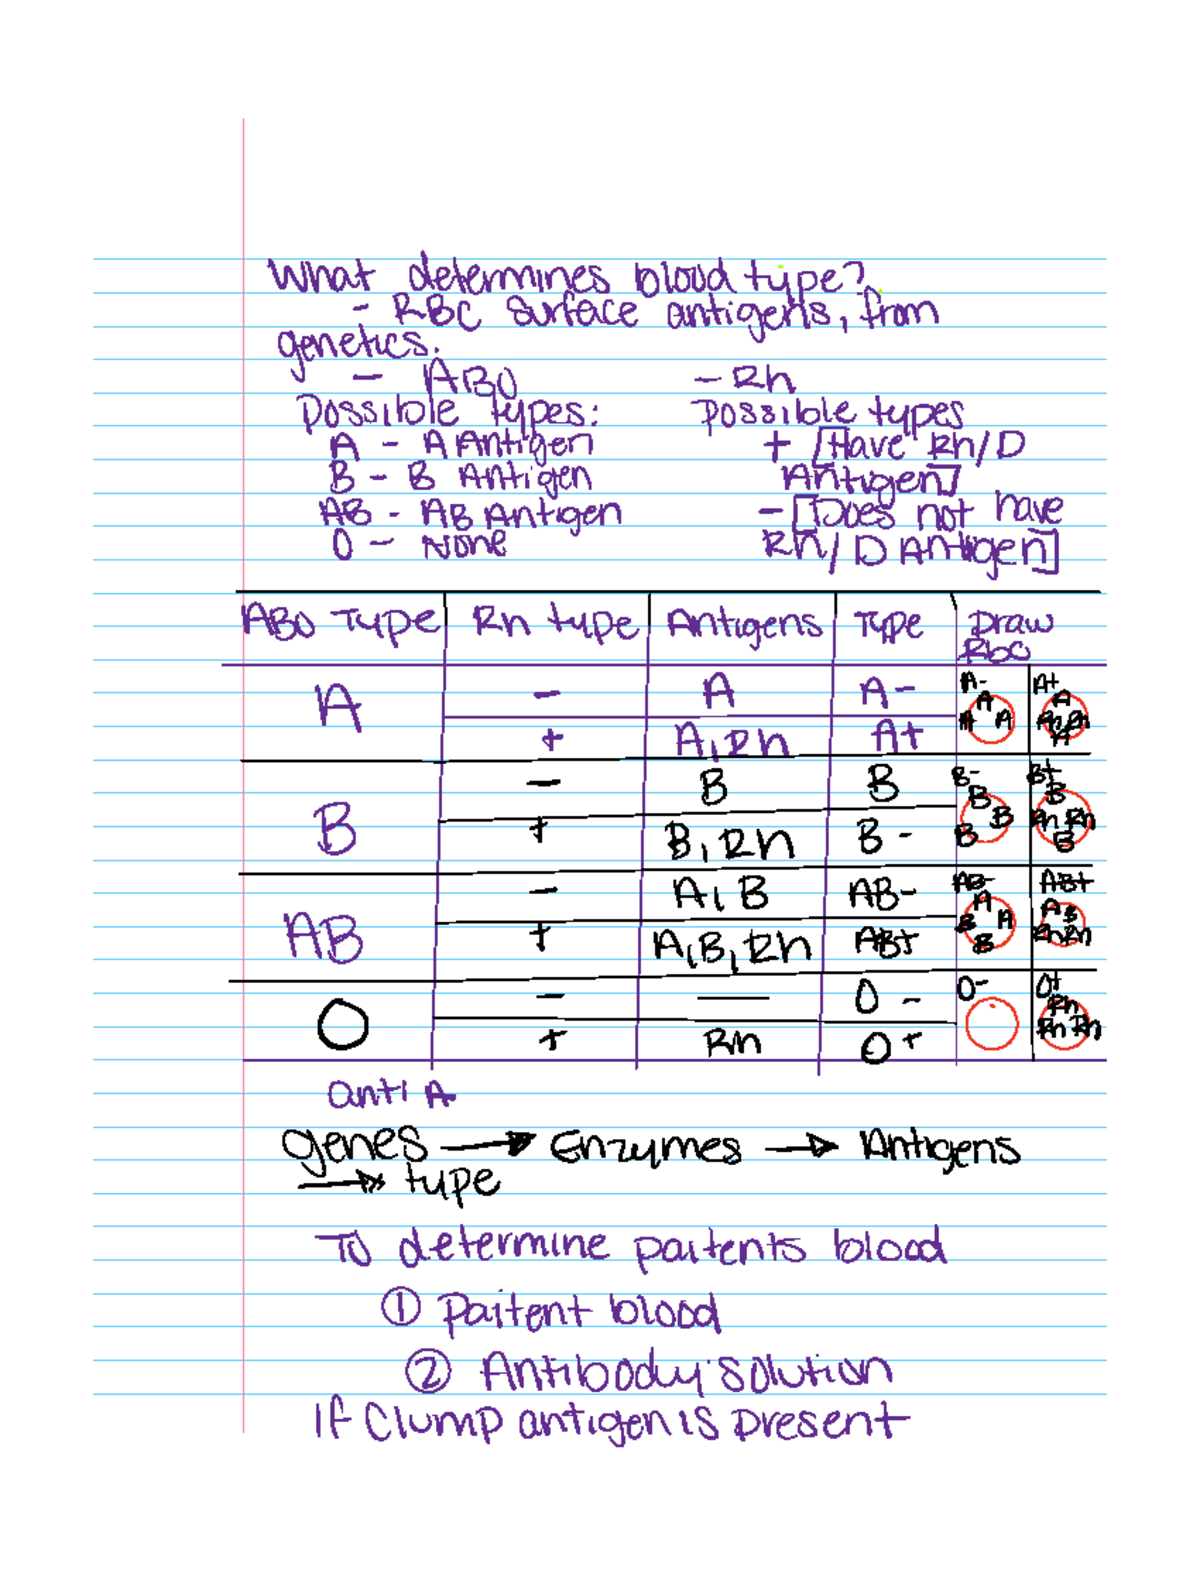 What determines blood type?
- RBC surface antigens, from
genetics.
- ABO - Rh
Possible types: Possible types
A - A Antigen + [Have Rh/D
B - B Antigen Antigen]
AB - AB Antigen - [Does not have
O - None Rh/D Antigen]
ABO Type Rh type Antigens Type Draw
Rbc
A - A A- A- A A A A+ A Rh Rh A
+ A, Rh A+
B - B B B- B B B B+ B Rh Rh B
+ B, Rh B -
AB - A, B AB- AB- A B A B AB+ A B Rh Rh
+ A, B, Rh AB+
O - — O - O- O+ Rh Rh Rh
+ Rh O+
anti A
genes → Enzymes → Antigens
→ type
To determine paitents blood
① Paitent blood
② Antibody solution
If Clump antigen is present